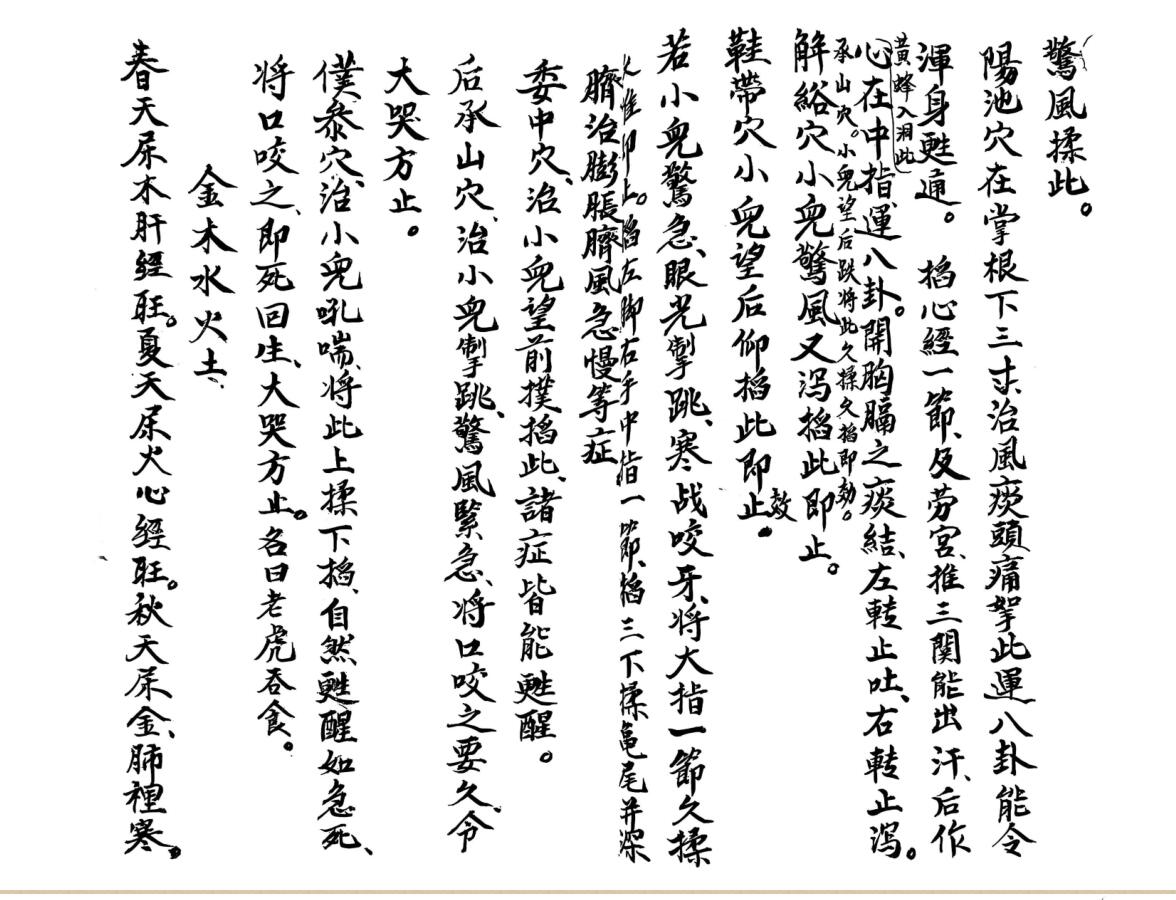 驚風揉此。
陽池穴在掌根下三寸、治風痰頭痛拏此運八卦能令
渾身甦通。掐心經一節、及劳宮、推三関能出汗、后作
黃蜂入洞此
心在中指、運八卦。開胸膈之痰結、左轉止吐、右轉止瀉。
承山穴。小兒望后跌將此久揉久掐即効。
解谿穴小兒驚風又瀉掐此即止。
效
鞋帶穴小兒望后仰掐此即止。
若小兒驚急、眼光掣跳、寒战咬牙、将大指一節久揉
久推即止。掐左脚右手中指一節、掐三下揉亀尾并深
臍治膨脹臍風急慢等症
委中穴、治小兒望前撲掐此、諸症皆能甦醒。
后承山穴、治小兒掣跳、驚風緊急、将口咬之要久、令
大哭方止。
僕參穴、治小兒吼喘、将此上揉下掐、自然甦醒如急死、
将口咬之、即死回生、大哭方止。名曰老虎吞食。
金木水火土
春天尿木肝經旺。夏天尿火心經旺。秋天尿金、肺裡寒。